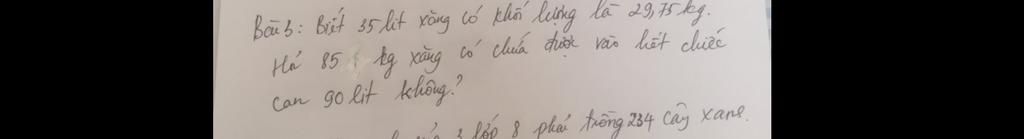 Bài 3: Biết 35 lít xăng có khối lượng là 29,75 kg.
Hỏi 85 kg xăng có chứa được vào hết chiếc
can 90 lít không?
3 lớp 8 phải trồng 234 cây xanh.